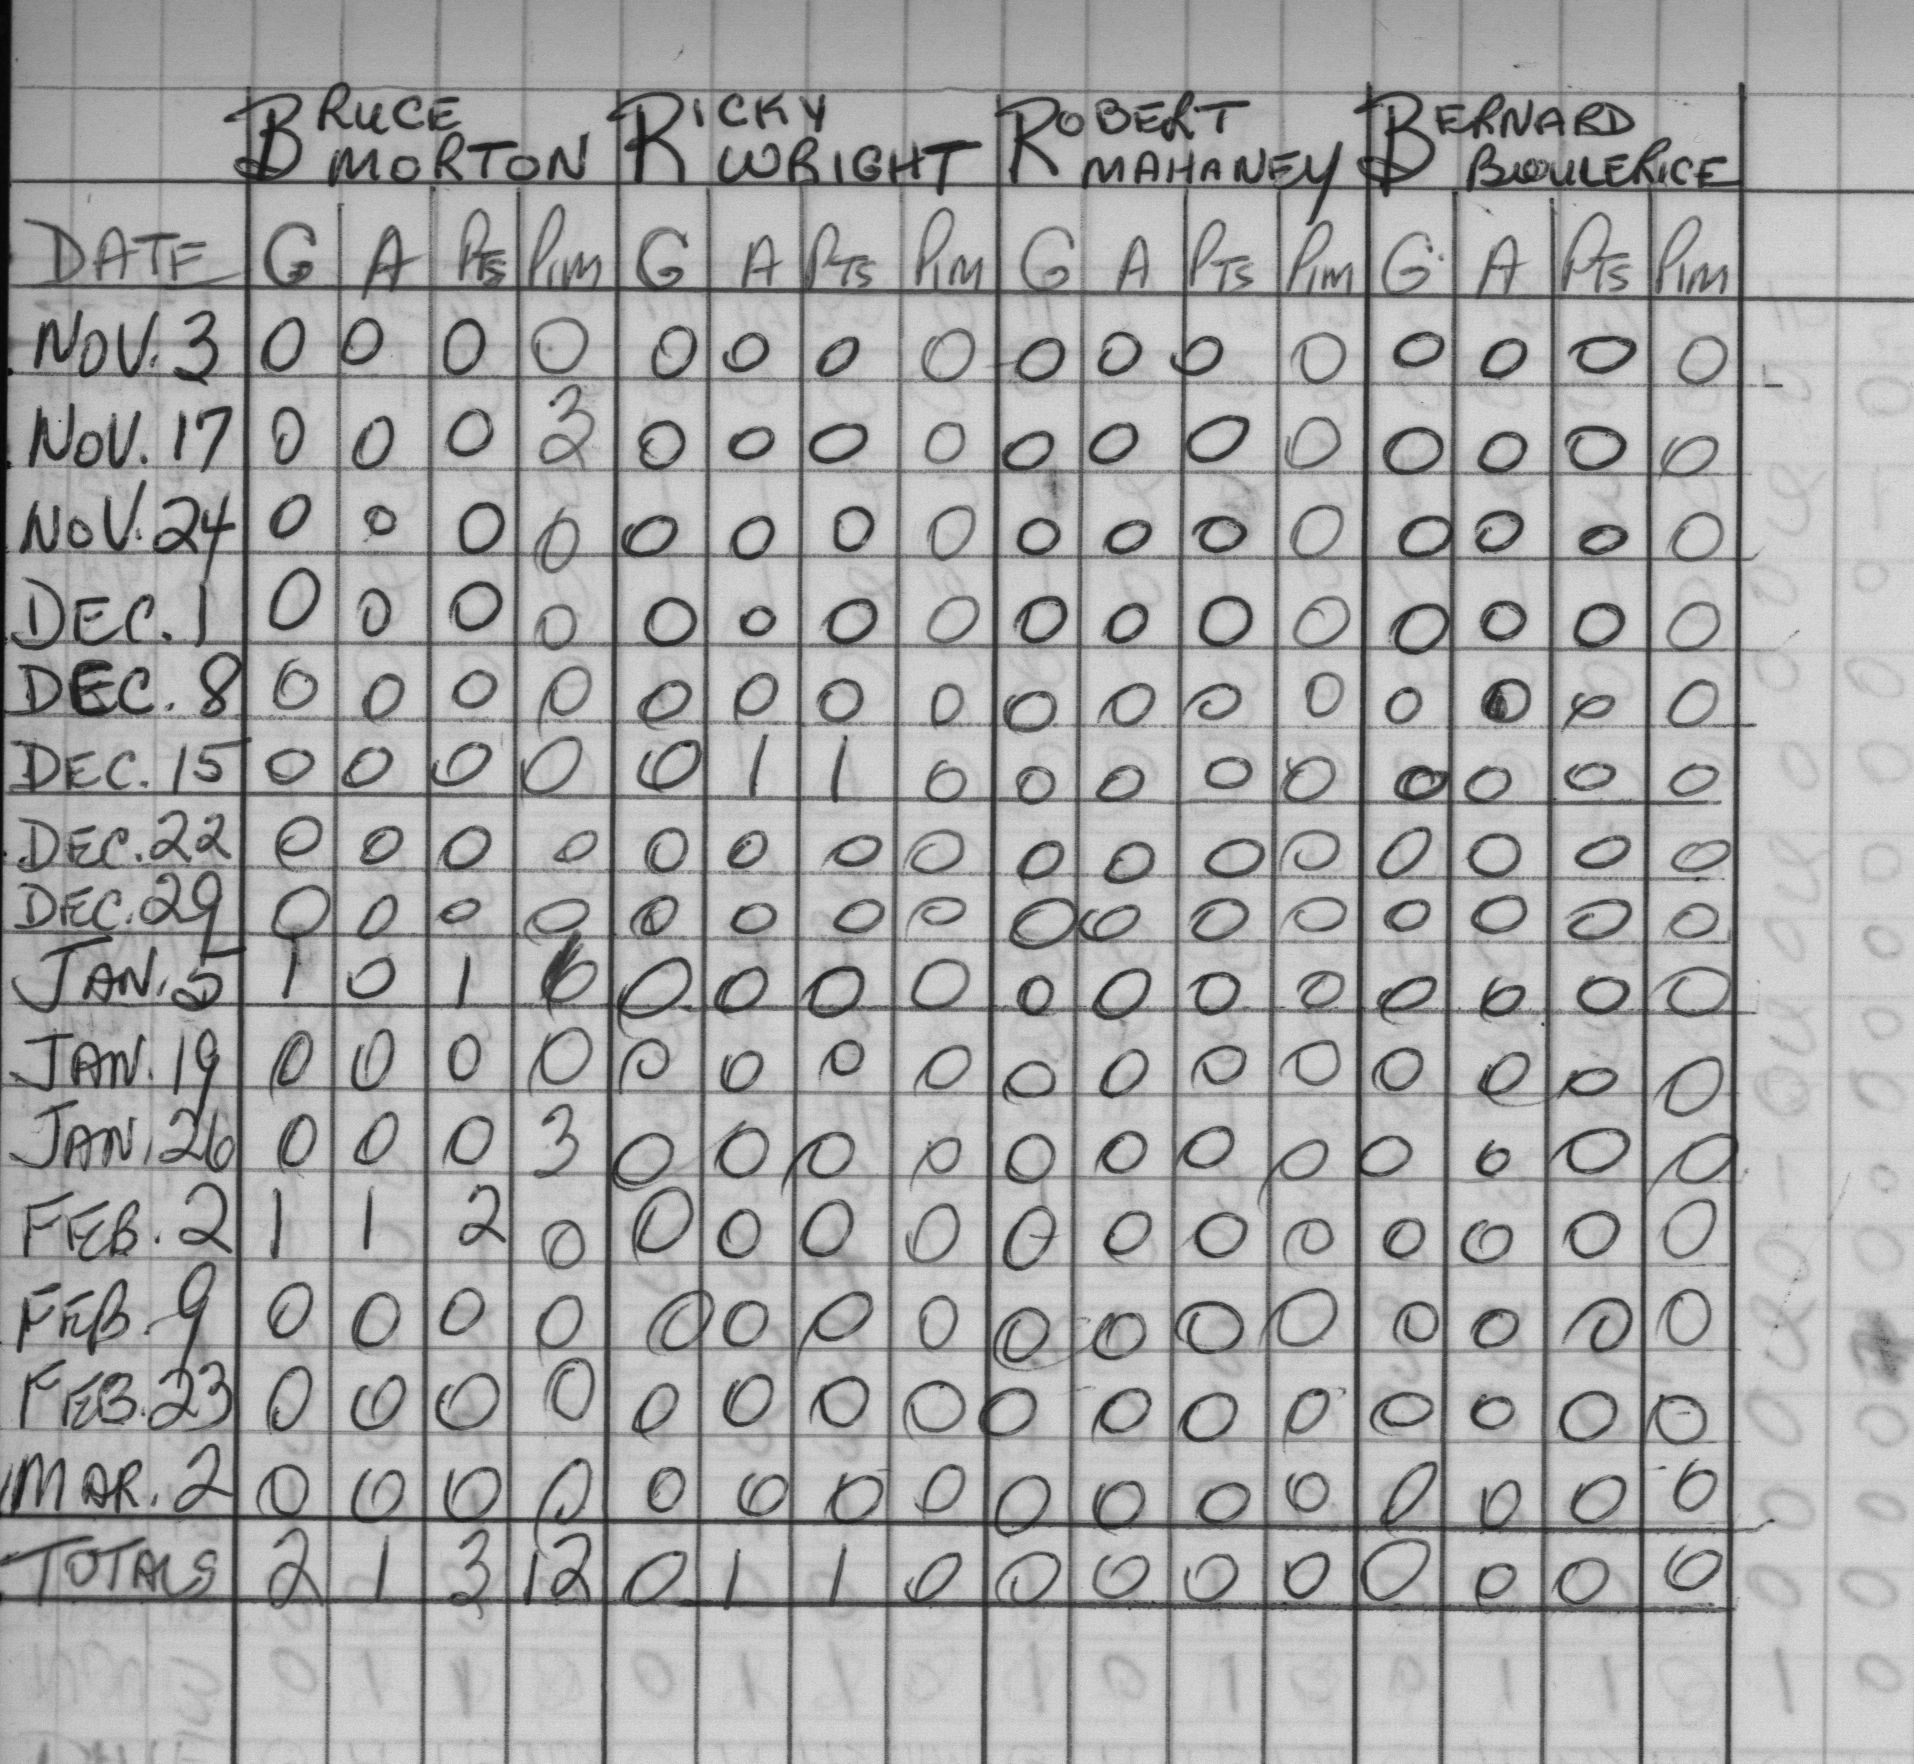 BRUCE MORTON RICKY WRIGHT ROBERT MAHANEY BERNARD BOULERICE
DATE G A PTS PIM G A PTS PIM G A PTS PIM G A PTS PIM
NOV. 3 0 0 0 0 0 0 0 0 0 0 0 0 0 0 0 0
NOV. 17 0 0 0 3 0 0 0 0 0 0 0 0 0 0 0 0
NOV. 24 0 0 0 0 0 0 0 0 0 0 0 0 0 0 0 0
DEC. 1 0 0 0 0 0 0 0 0 0 0 0 0 0 0 0 0
DEC. 8 0 0 0 0 0 0 0 0 0 0 0 0 0 0 0 0
DEC. 15 0 0 0 0 0 1 1 0 0 0 0 0 0 0 0 0
DEC. 22 0 0 0 0 0 0 0 0 0 0 0 0 0 0 0 0
DEC. 29 0 0 0 0 0 0 0 0 0 0 0 0 0 0 0 0
JAN. 5 1 0 1 6 0 0 0 0 0 0 0 0 0 0 0 0
JAN. 19 0 0 0 0 0 0 0 0 0 0 0 0 0 0 0 0
JAN. 26 0 0 0 3 0 0 0 0 0 0 0 0 0 0 0 0
FEB. 2 1 1 2 0 0 0 0 0 0 0 0 0 0 0 0 0
FEB. 9 0 0 0 0 0 0 0 0 0 0 0 0 0 0 0 0
FEB. 23 0 0 0 0 0 0 0 0 0 0 0 0 0 0 0 0
MAR. 2 0 0 0 0 0 0 0 0 0 0 0 0 0 0 0 0
TOTALS 2 1 3 12 0 1 1 0 0 0 0 0 0 0 0 0